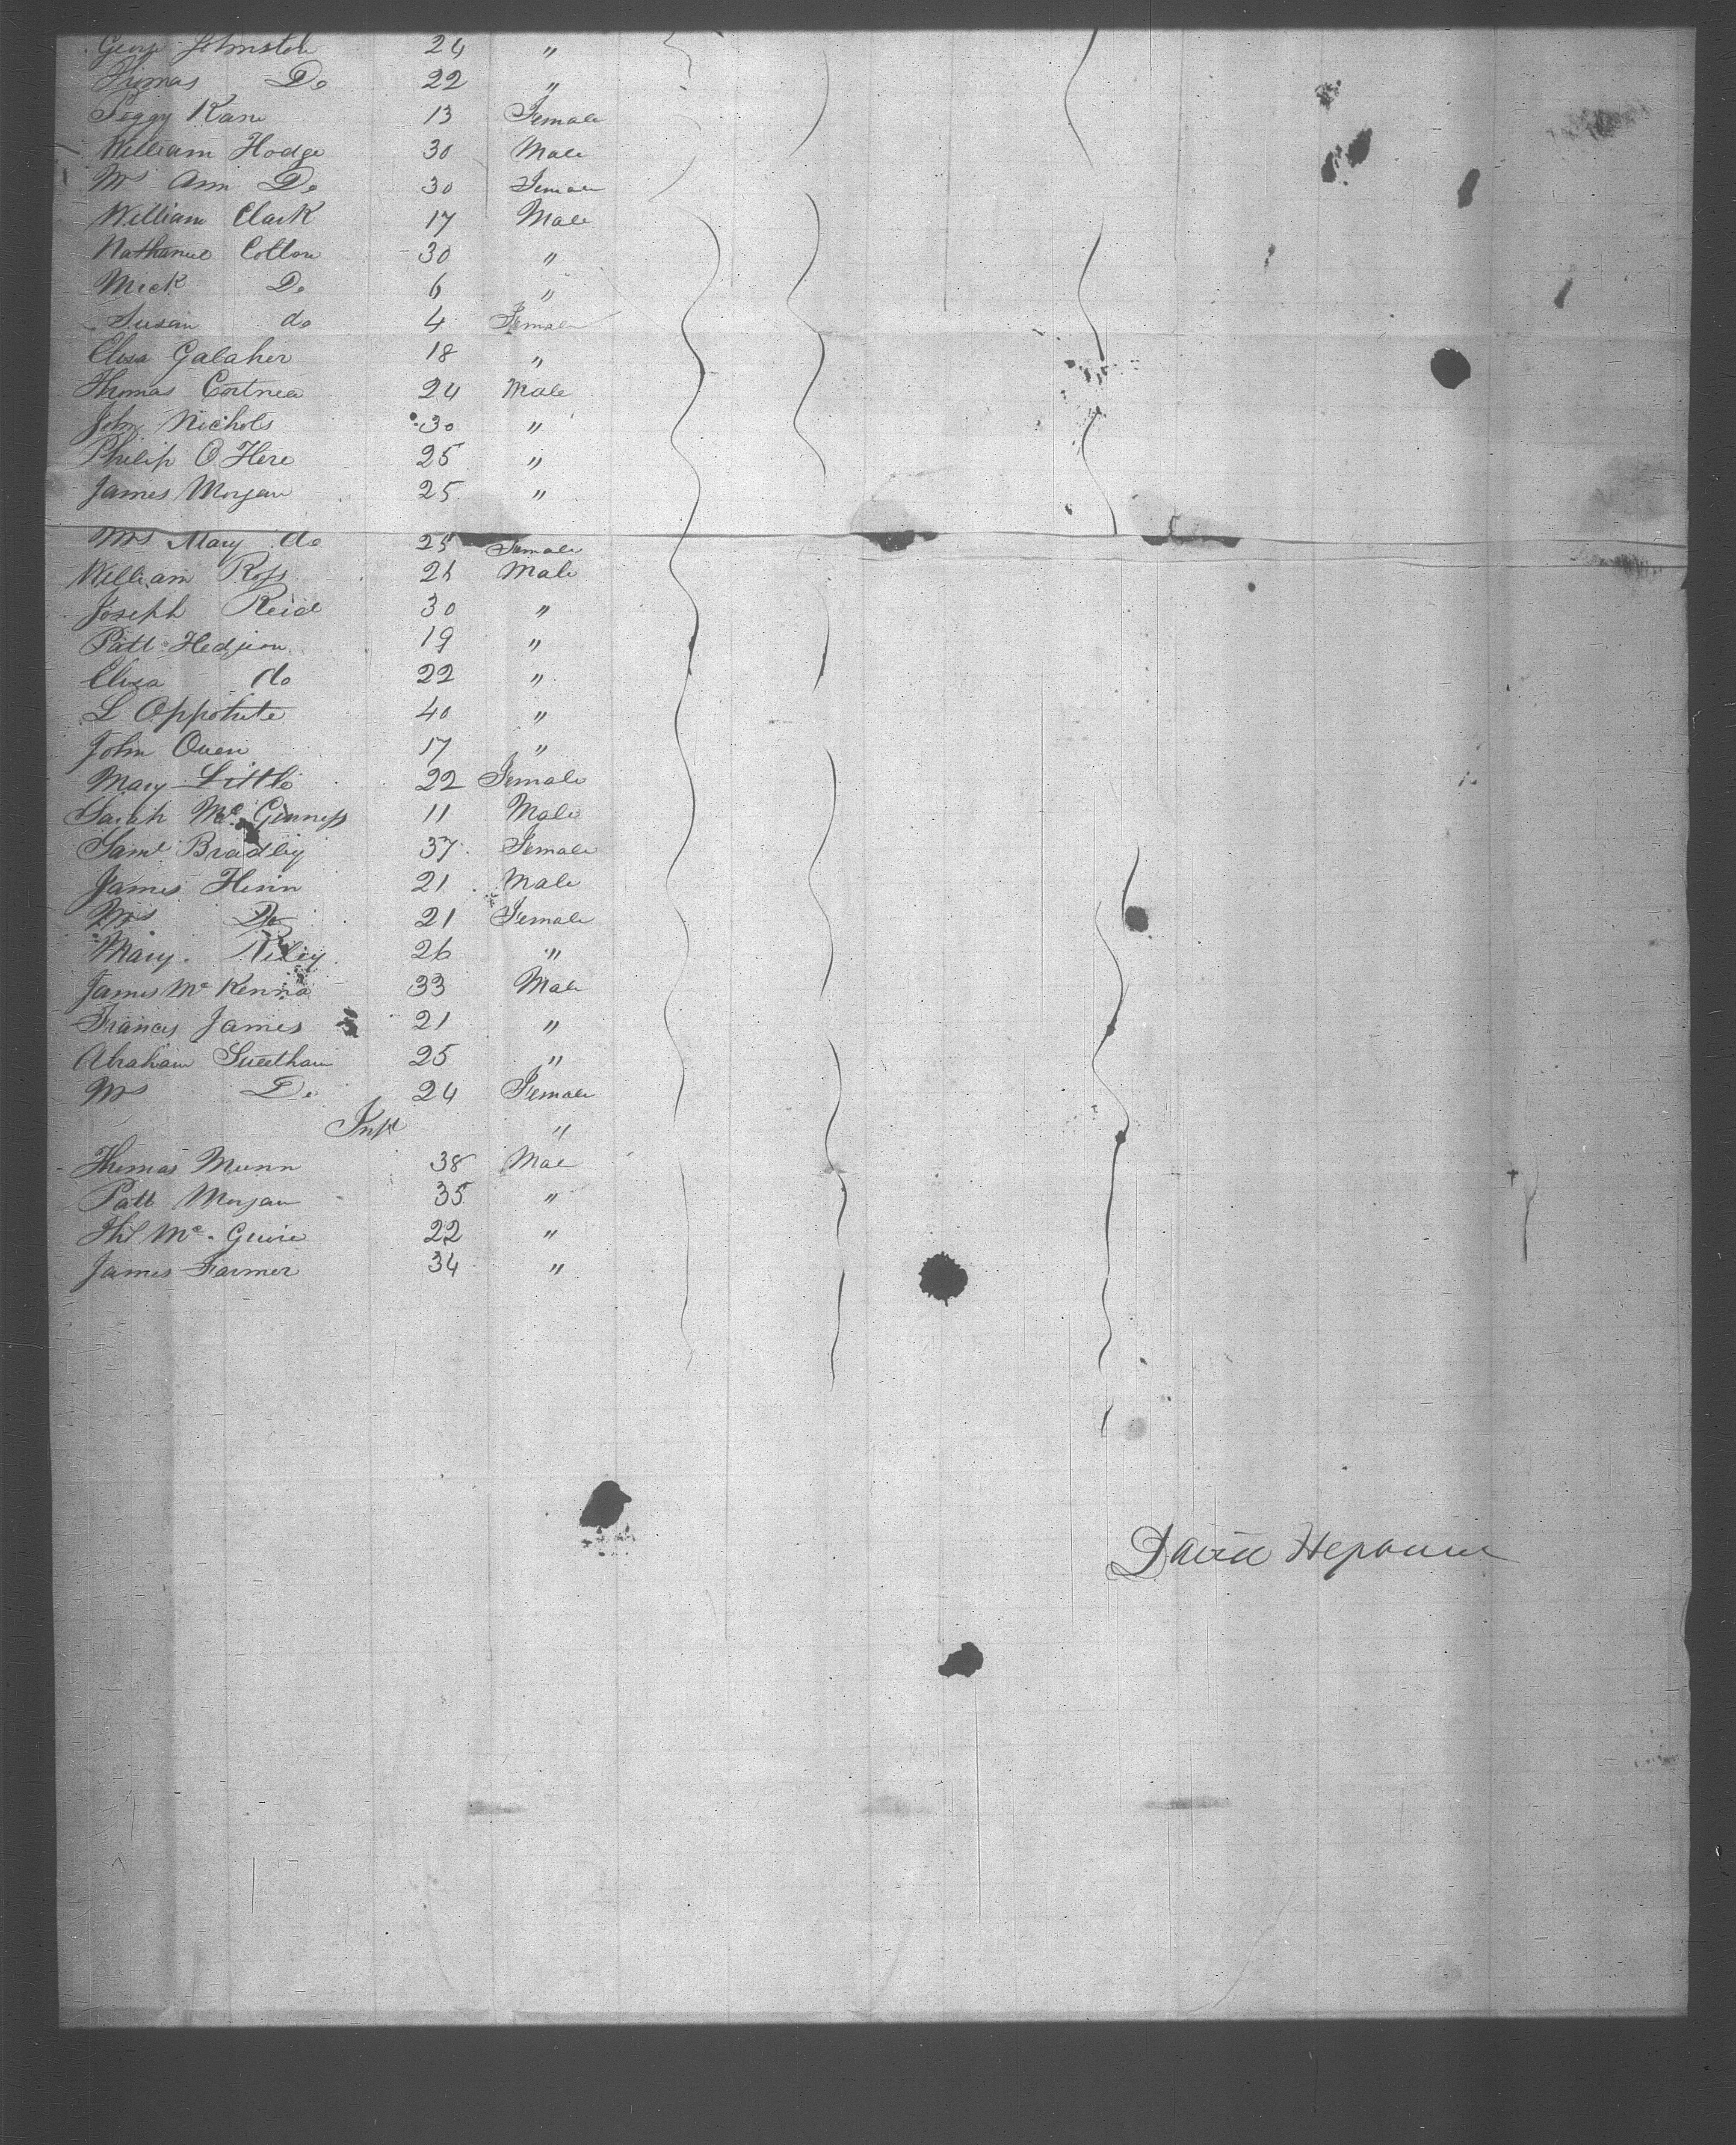 George Johnston 24 "
Thomas Do 22 "
Peggy Kane 13 Female
William Hodge 30 Male
Ms Ann Do 30 Female
William Clark 17 Male
Nathaniel Cotton 30 "
Mick Do 6 "
Susan do 4 Female
Eliza Galaher 18 "
Thomas Cortnea 24 Male
John Nichols 30 "
Philip O Here 25 "
James Morgan 25 "
Mrs Mary do 25 Female
William Ross 21 Male
Joseph Reid 30 "
Patt 19 "
Eliza do 22 "
L Oppohite 40 "
John Owen 17 "
Mary Little 22 Female
Sarah Mc Ginness 11 Male
Saml Bradley 37 Female
James Henn 21 Male
Mrs Do 21 Female
Mary Riley 26 "
James Mc Kenna 33 Male
Francis James 21 "
Abraham Sueetham 25 "
Ms Do 24 Female
Inft "
Thomas Munn 38 Male
Patt Morgan 35 "
Phil Mc Guire 22 "
James Farmer 34 "
David Hepburn